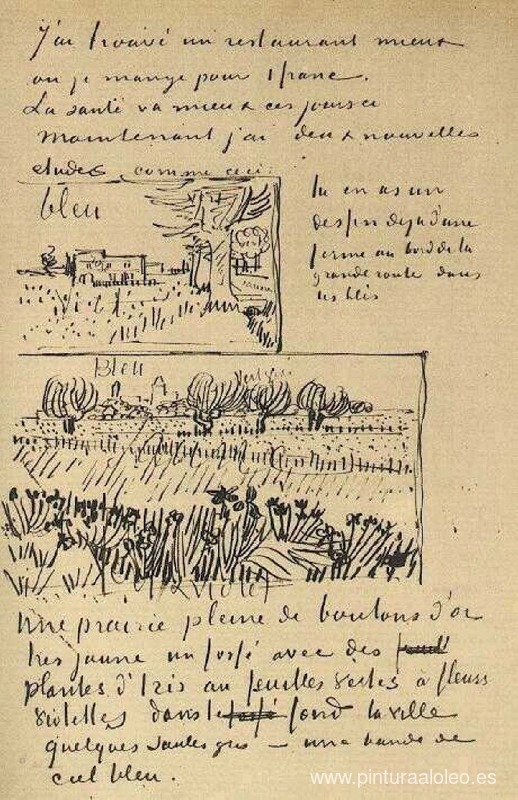 J'ai trouvé un restaurant mieux
ou je mange pour 1 franc.
La santé va mieux ces jours ci
Maintenant j'ai deux nouvelles
etudes comme ceci:
bleu
tu en as un
dessin deja d'une
ferme au bord de la
grande route dans
les blés
Bleu
Violet
Une prairie pleine de boutons d'or
tres jaune un fossé avec des
plantes d'Iris au feuilles vertes à fleurs
violettes dans le fossé fond la ville
quelques saules gris – une bande de
ciel bleu.
www.pinturaaloleo.es